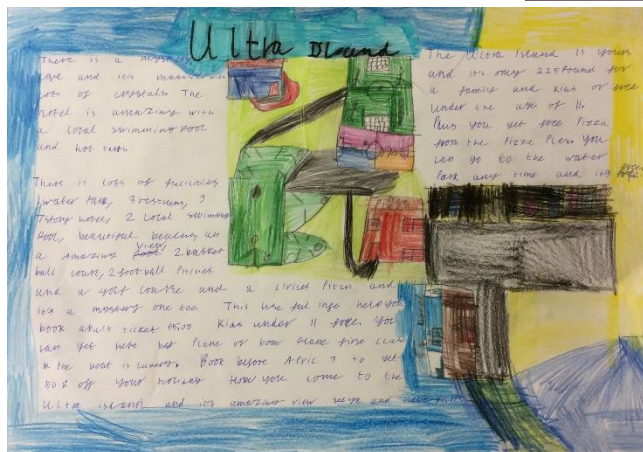 Ultra Island
There is a mystery
cave and its massive
lots of crystals The
hotel is amazing with
a local swimming pool
and hot tubs
There is lots of facilities
1 water park, 3 resturing, 3
7 story hotel, 2 local swimming
pool, beautiful beaches, an
a amazing view 2 basket
ball court, 2 football Piches
and a golf course and a Cricket Pitch, and
its a mystery one too. This use ful info help you
book adult ticket Kids under 11 free. You
can get here by Plane or boat Plane first class
& the boat is luxury. Book before April 3 to get
off your holiday Hope you come to the
Ultra island and its amazing view and
The Ultra Island is yours
and its only 225 Pound for
a family and kids or free
under the age of 11.
Plus you get free Pizza
from the Pizza Plex. You
can go to the water
Park any time and its free